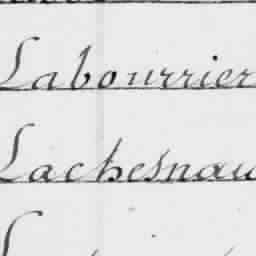 Labourrier
Lachesnau